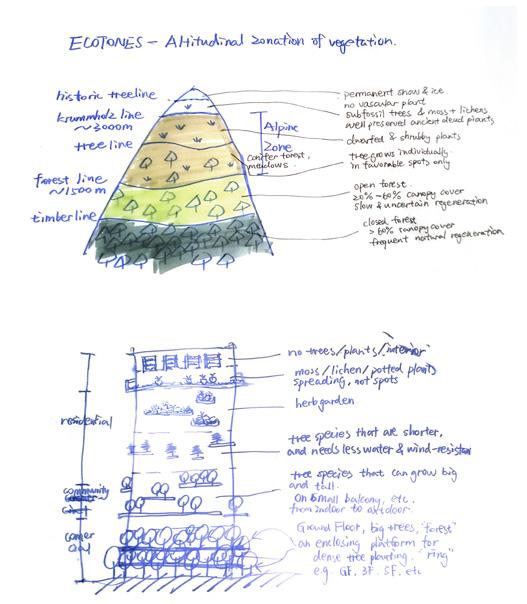 ECOTONES – Altitudinal zonation of vegetation.
historic treeline
krummholz line
~3000m
treeline
forest line
~1500m
timberline
Alpine
Zone
conifer forest,
meadows
permanent snow & ice
no vascular plant
subfossil trees & moss + lichens
well preserved ancient dead plants
dwarfed & shrubby plants
tree grows individually
in favorable spots only
open forest.
20% ~ 60% canopy cover
slow & uncertain regeneration
closed forest
> 60% canopy cover
frequent natural regeneration
residential
community
no trees/plants/interior
moss/lichen/potted plants
spreading, not spots
herb garden
tree species that are shorter,
and needs less water & wind-resistan
tree species that can grow big
and tall.
On small balcony, etc.
from indoor to outdoor.
Ground Floor, big trees, "forest"
an enclosing platform for
dense tree planting. "ring"
e.g. GF. 3F. 5F. etc